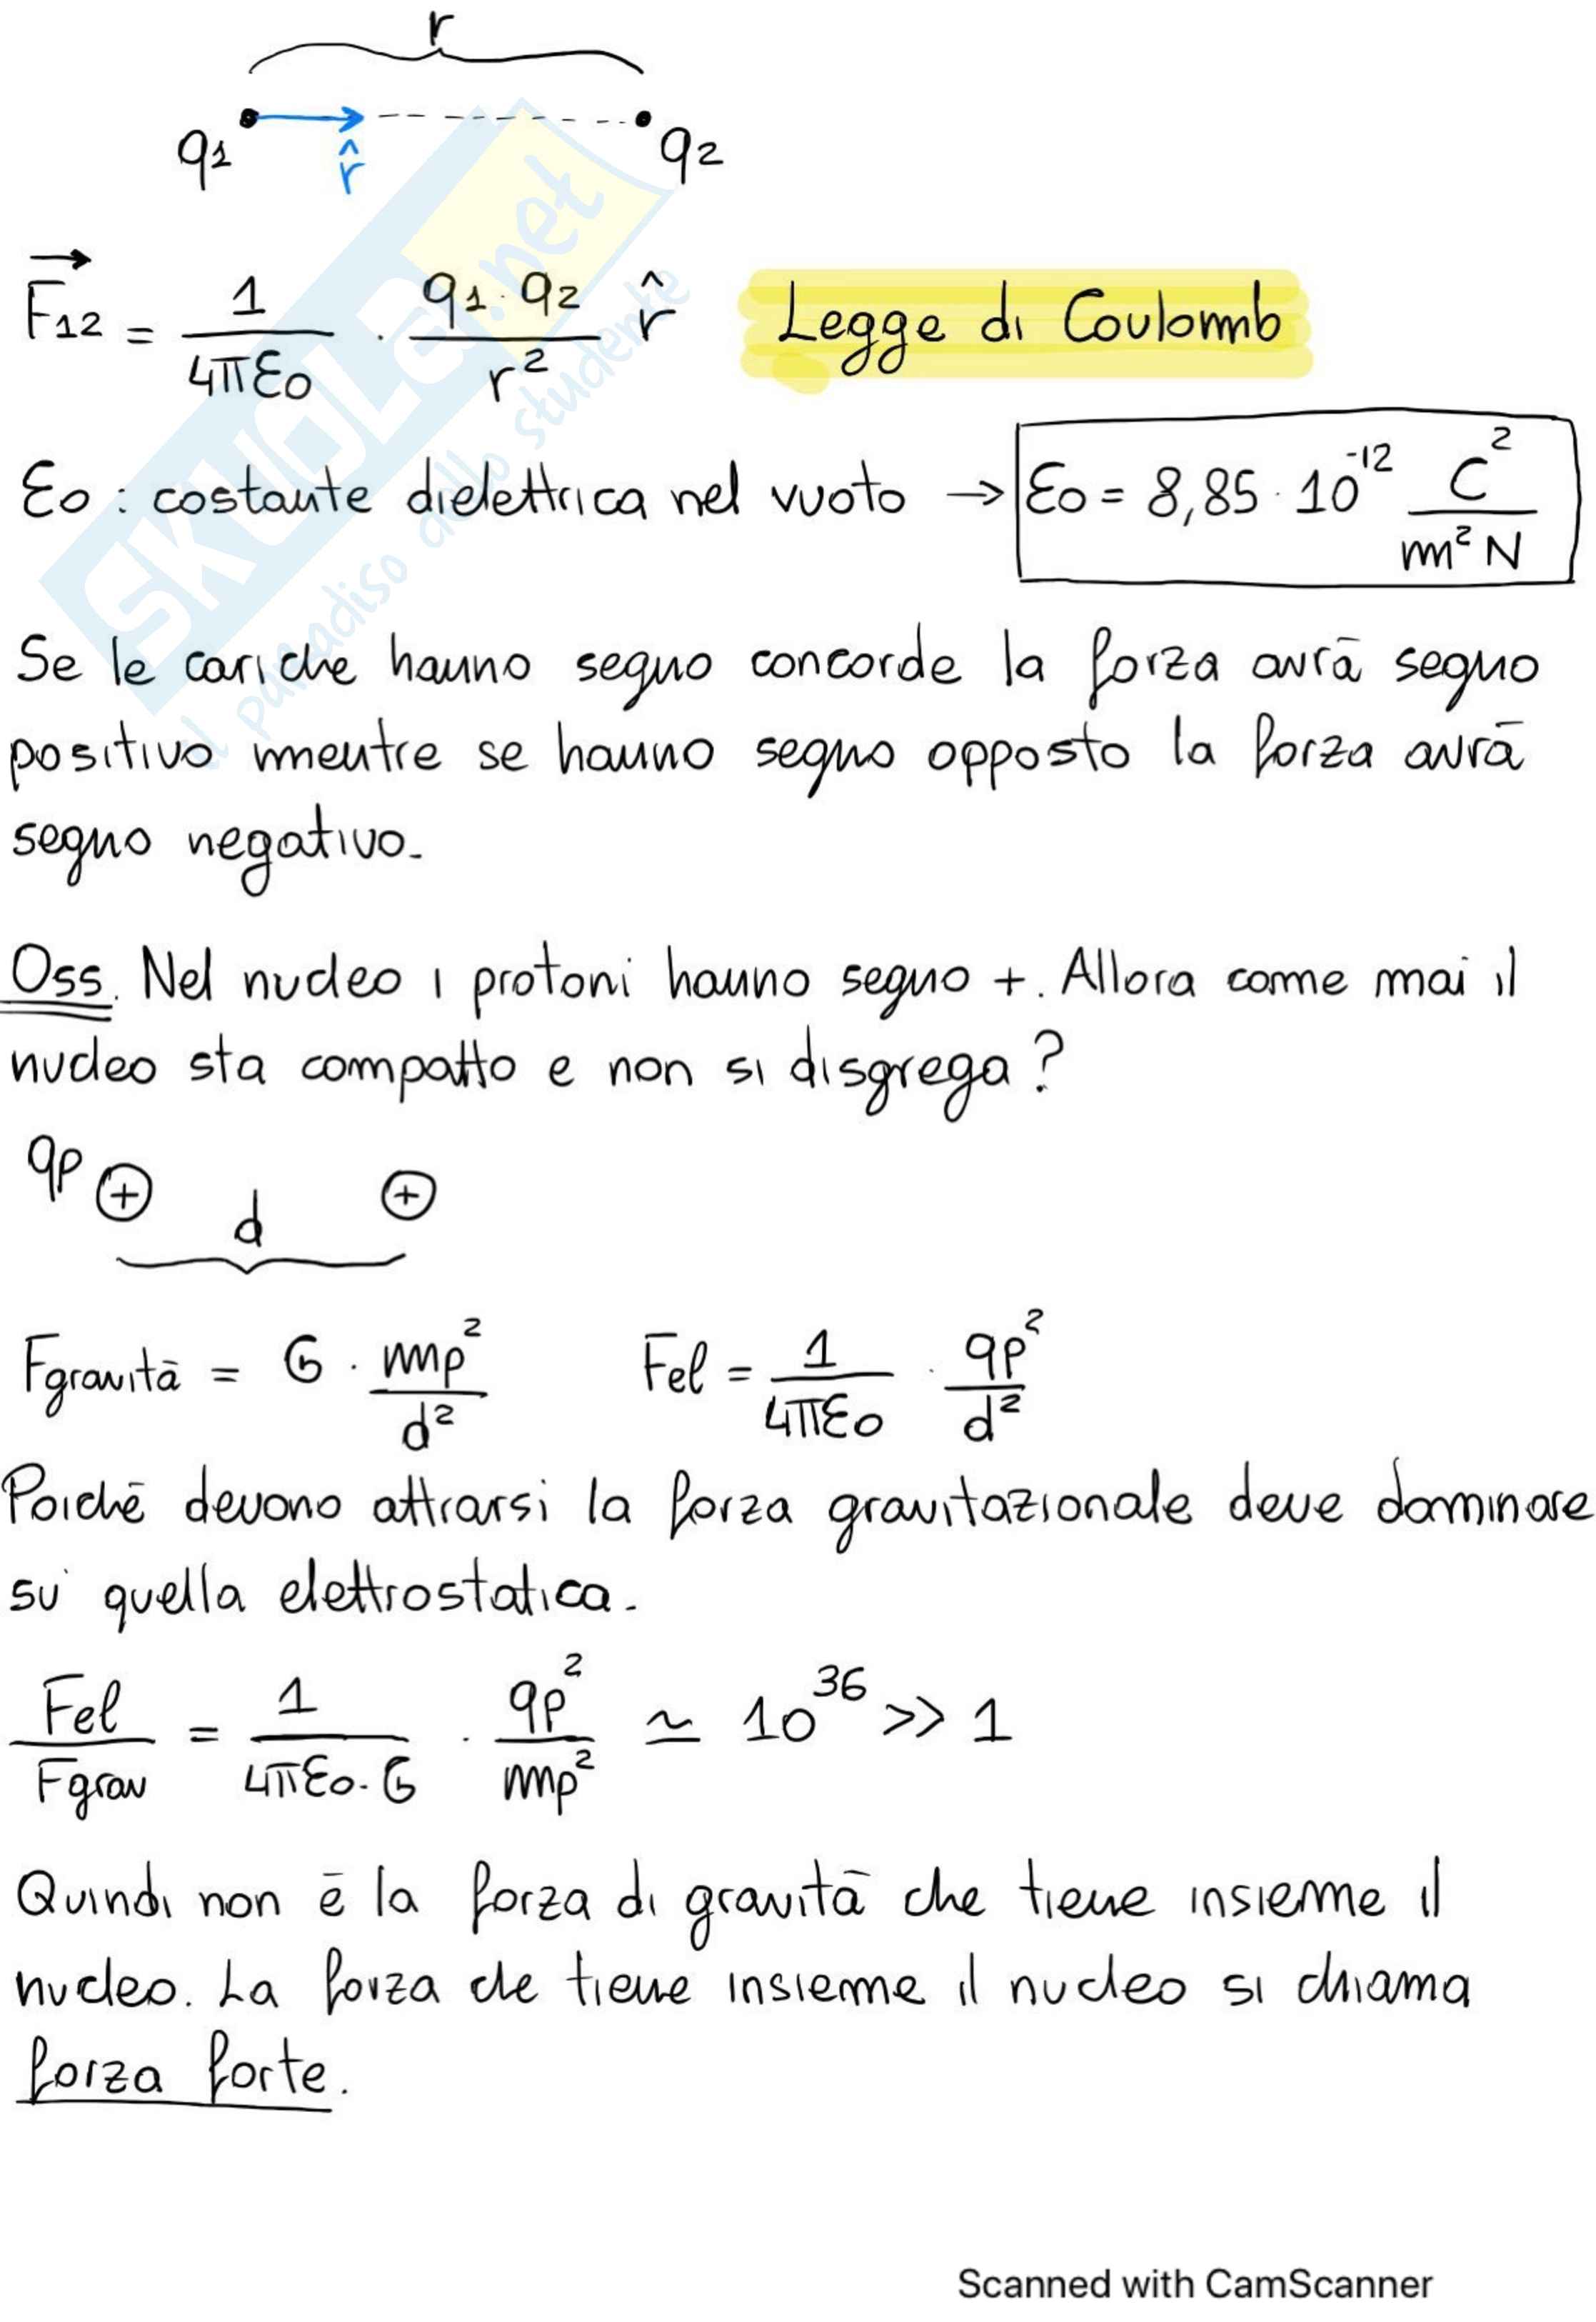 r
q1 r̂ q2
F⃗12 = 1/4πε0 · q1·q2/r² r̂ Legge di Coulomb
ε0 : costante dielettrica nel vuoto → ε0 = 8,85·10⁻¹² C²/m²N
Se le cariche hanno segno concorde la forza avrà segno
positivo mentre se hanno segno opposto la forza avrà
segno negativo.
Oss. Nel nucleo i protoni hanno segno +. Allora come mai il
nucleo sta compatto e non si disgrega?
qp + d +
Fgravità = G · mp²/d² Fel = 1/4πε0 · qp²/d²
Poiché devono attrarsi la forza gravitazionale deve dominare
su quella elettrostatica.
Fel/Fgrav = 1/4πε0·G · qp²/mp² ≃ 10³⁶ >> 1
Quindi non è la forza di gravità che tiene insieme il
nucleo. La forza che tiene insieme il nucleo si chiama
forza forte.
SKUOLA.net
il paradiso dello studente
Scanned with CamScanner